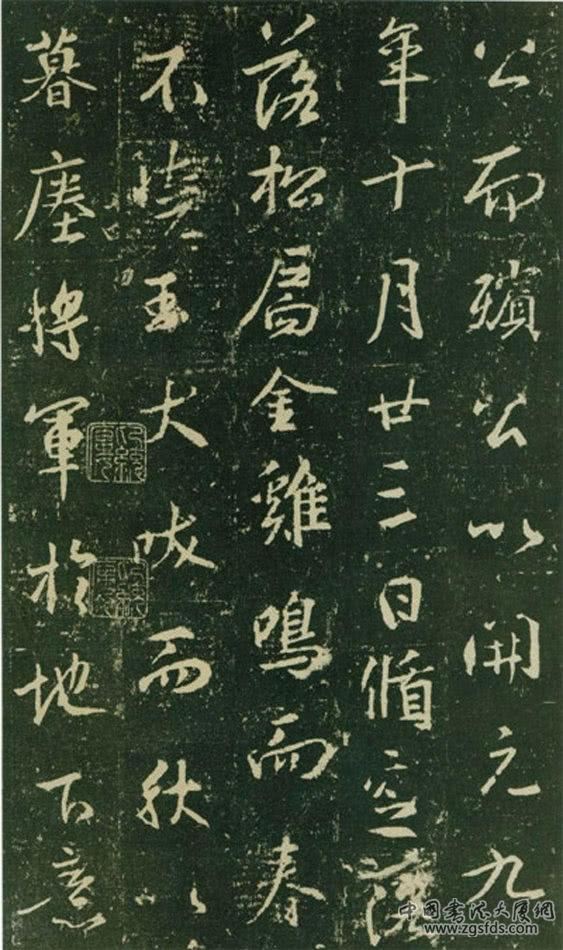 公而殯公以開元九
年十月廿三日循
落松扃金雞鳴而春
不曉玉犬吠而秋以
暮瘞將軍於地下意
中國書法大展網
www.zgsfds.com